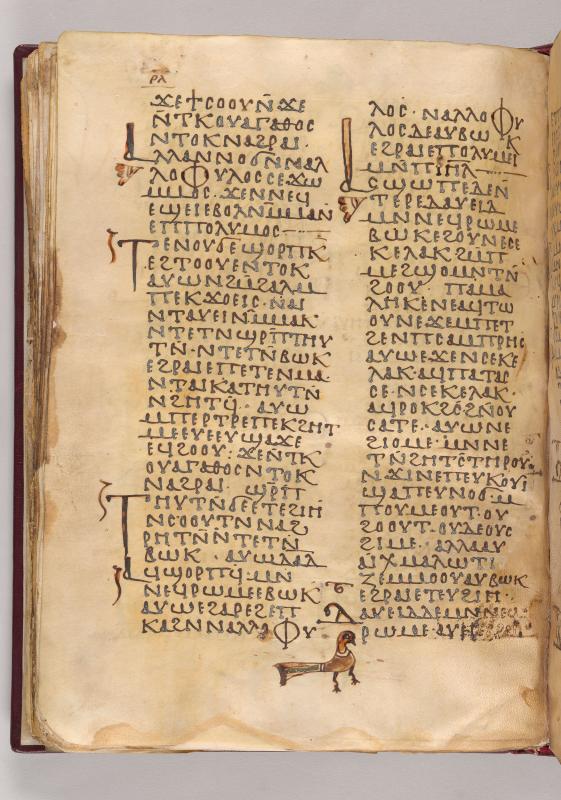 ⲣⲗ
ϫⲉϯⲥⲟⲟⲩⲛ̄ϫⲉ
ⲛ̄ⲧⲕⲟⲩⲁⲅⲁⲑⲟⲥ
ⲛⲧⲟⲕⲛⲁϩⲣⲁⲓ·
ⲁⲗⲗⲁⲛⲛⲟϭⲛ̄ⲛⲁⲗ
ⲗⲟⲫⲩⲗⲟⲥⲥⲉϫⲱ
ⲙⲙⲟⲥ·ϫⲉⲛⲛⲉϥ
ⲉϣⲉⲓⲉⲃⲟⲗⲛⲙ̄ⲙⲁⲛ
ⲉⲡⲡⲟⲗⲩⲙⲟⲥ
ⲧⲉⲛⲟⲩϭⲉϣⲟⲣⲡⲕ̄
ⲉϩⲧⲟⲟⲩⲉⲛⲧⲟⲕ
ⲁⲩⲱⲛϩⲙ̄ϩⲁⲗⲙ̄
ⲡⲉⲕϫⲟⲉⲓⲥ·ⲛ̄ⲁⲓ
ⲛⲧⲁⲩⲉⲓⲛⲙ̄ⲙⲁⲕ
ⲛⲧⲉⲧⲛϣⲣⲡ̄ⲧⲏⲩ
ⲧⲛ̄·ⲛⲧⲉⲧⲛ̄ⲃⲱⲕ
ⲉϩⲣⲁⲓⲉⲡⲉⲧⲉⲛⲙⲁ·
ⲛⲧⲁⲓⲕⲁⲧⲏⲩⲧⲛ̄
ⲛϩⲏⲧϥ̄·ⲁⲩⲱ
ⲙⲡⲉⲣⲧⲣⲉⲡⲉⲕϩⲏⲧ
ⲙⲉⲉⲩⲉⲉⲩϣⲁϫⲉ
ⲉϥϩⲟⲟⲩ:ϫⲉⲛ̄ⲧⲕ
ⲟⲩⲁⲅⲁⲑⲟⲥⲛⲧⲟⲕ
ⲛⲁϩⲣⲁⲓ·ϣⲣⲡ̄
ⲧⲏⲩⲧⲛ̄ϭⲉⲉⲧⲉϩⲓⲏ
ⲛⲥ̄ⲟⲟⲩⲧⲛⲛⲁϩ
ⲣⲏⲧⲛ̄ⲛ̄ⲧⲉⲧⲛ̄
ⲃⲱⲕ·ⲁⲩⲱⲇⲁⲇ
ϥϣⲟⲣⲡϥ̄·ⲙⲛ̄
ⲛⲉϥⲣⲱⲙⲉⲉⲃⲱⲕ
ⲁⲩⲱⲉϩⲁⲣⲉϩⲉⲡ
ⲕⲁϩⲛⲛⲁⲗⲗⲟⲫⲩ
ⲗⲟⲥ·ⲛⲁⲗⲗⲟⲫⲩ
ⲗⲟⲥⲇⲉⲁⲩⲃⲱⲕ
ⲉϩⲣⲁⲓⲉⲡⲡⲟⲗⲩⲙⲉⲓ
ⲙⲛ̄ⲡⲓ̄ⲏ̄ⲗ̄
ⲁⲥϣⲱⲡⲉⲇⲉⲛ̄
ⲧⲉⲣⲉⲇⲁⲩⲉⲓⲇ
ⲙⲛⲛⲉϥⲣⲱⲙⲉ
ⲃⲱⲕⲉϩⲟⲩⲛⲉⲥⲉ
ⲕⲉⲗⲁⲕϩⲙ̄ⲡ
ⲙⲉϩϣⲟⲙⲛⲧⲛ̄
ϩⲟⲟⲩ·ⲡⲁⲙⲁ
ⲗⲏⲕⲛⲉⲁϥⲧⲱ
ⲟⲩⲛⲉϫⲙ̄ⲡⲉⲧ
ϩⲉⲛⲡⲥⲁⲙⲡⲣⲏⲥ
ⲁⲩⲱⲉϫⲉⲛⲥⲉⲕⲉ
ⲗⲁⲕ·ⲁϥⲡⲁⲧⲁⲥ
ⲥⲉ·ⲛⲥⲉⲕⲉⲗⲁⲕ·
ⲁϥⲣⲟⲕϩⲥ̄ϩⲛ̄ⲟⲩ
ⲥⲁⲧⲉ·ⲁⲩⲱⲛⲉ
ϩⲓⲟⲙⲉ·ⲙⲛⲛⲉ
ⲧⲛ̄ϩⲏⲧⲥ̄ⲧⲏⲣⲟⲩ·
ⲛ·ϫⲓⲛⲉⲡⲉⲩⲕⲟⲩⲓ
ϣⲁⲡⲉⲩⲛⲟϭ·ⲙ̄
ⲡⲟⲩⲙⲉⲟⲩⲧ·ⲟⲩ
ϩⲟⲟⲩⲧ·ⲟⲩⲇⲉⲟⲩⲥ
ϩⲓⲙⲉ·ⲁⲗⲗⲁⲁⲩ
ⲁⲓⲭⲙⲁⲗⲱⲧⲓ
ⲍⲉⲙⲙⲟⲟⲩⲁⲩⲃⲱⲕ
ⲉϩⲣⲁⲓⲉⲧⲉⲩϩⲓⲏ·
ⲇⲁⲩⲉⲓⲇⲇⲉⲙⲛⲛⲉϥ
ⲣⲱⲙⲉ·ⲁⲩⲉⲓ